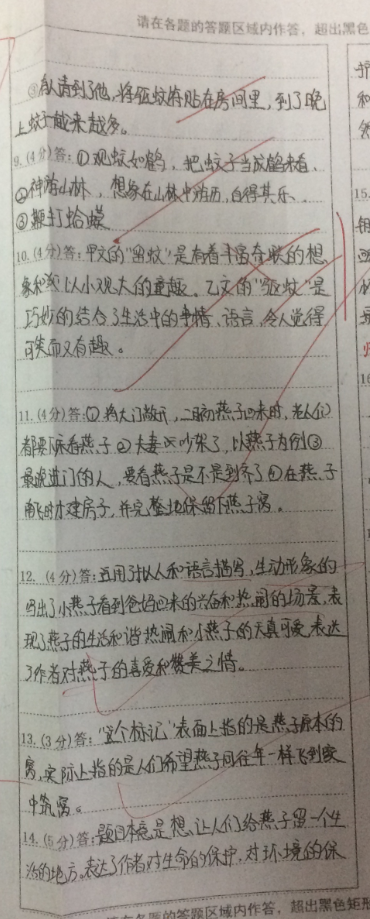 请在各题的答题区域内作答，超出黑色
③有人请到了他，将驱蚊符贴在房间里，到了晚
上蚊子越来越多。
9.(4分)答:①观蚊如鹤，把蚊子当成鹤来看、
②神游山林，想象在山林中游历，自得其乐、
③鞭打蛤蟆
10.(4分)答:甲文的“留蚊”是有着丰富奇妙的想
象和以小观大的童趣。乙文的“驱蚊”是
巧妙的结合了生活中的事情、语言，令人觉得
可笑而又有趣。
11.(4分)答:①将大门敞开，二月初燕子回来时，老人们
都要来看燕子②夫妻吵架了，以燕子为例③
最先进门的人，要看燕子是不是到齐了④在燕子
南飞时才建房子，并完整地保留下燕子窝。
12.(4分)答:运用了拟人和语言描写，生动形象的
写出了小燕子看到爸妈回来的兴奋和热闹的场景，表
现了燕子的生活和谐热闹和小燕子的天真可爱，表达
了作者对燕子的喜爱和赞美之情。
13.(3分)答:“这个标记”表面上指的是燕子原本的
窝，实际上指的是人们希望燕子同往年一样飞到家
中筑窝。
14.(5分)答:题目本意是想让人们给燕子留一个生
活的地方，表达了作者对生命的保护，对环境的保
在各题的答题区域内作答，超出黑色矩形
15.